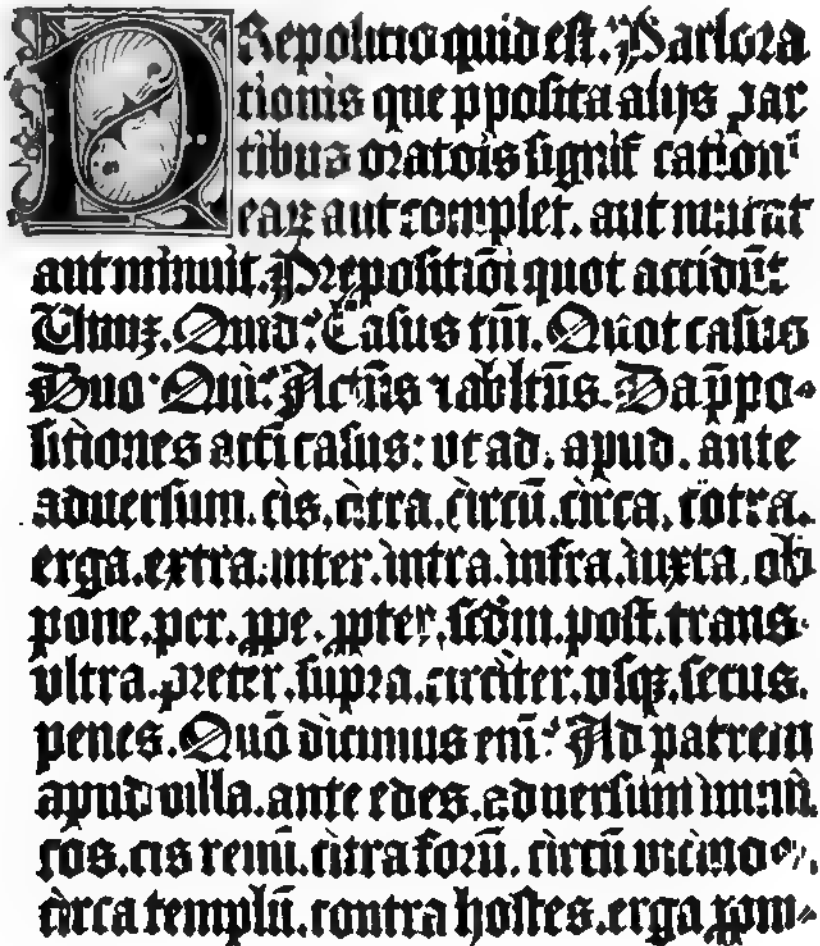 PRepositio quid est. Pars ora
tionis que p̱posita alijs par
tibus oratõis signification㝫
eaꝝ aut complet. aut mutat
aut minuit. Prepositiõi quot accidũt
Unuꝫ. Quid? Casus tm̃. Quot casus
Duo. Qui? Actũs ⁊ ablatũs. Da p̄po-
sitiones acti casus: vt ad. apud. ante
aduersum. cis. citra. circũ. circa. cõtra.
erga. extra. inter. intra. infra. iuxta. ob
pone. per. ꝓpe. ꝓpter. scd̃m. post. trans.
vltra. preter. supra. circiter. vsqꝫ. secus.
penes. Quõ dicimus eni᷑? Ad patrem
apud villã. ante edes. aduersum inimi
cos. cis renũ. citra forũ. circũ vicinos.
circa templũ. contra hostes. erga ꝓpin-